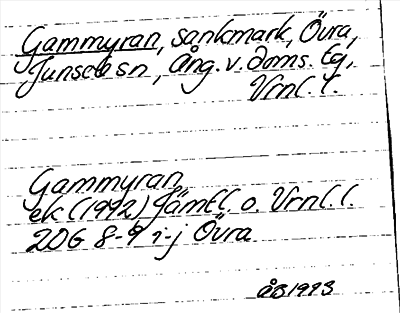 Gammyran, sankmark, Övra,
Junsele sn, Ång. v. doms. tg,
Vrnl. l.
Gammyran
ek (1992) Jämtl. o. Vrnl. l.
20G 8-9 i-j Övra
ÅB 1993